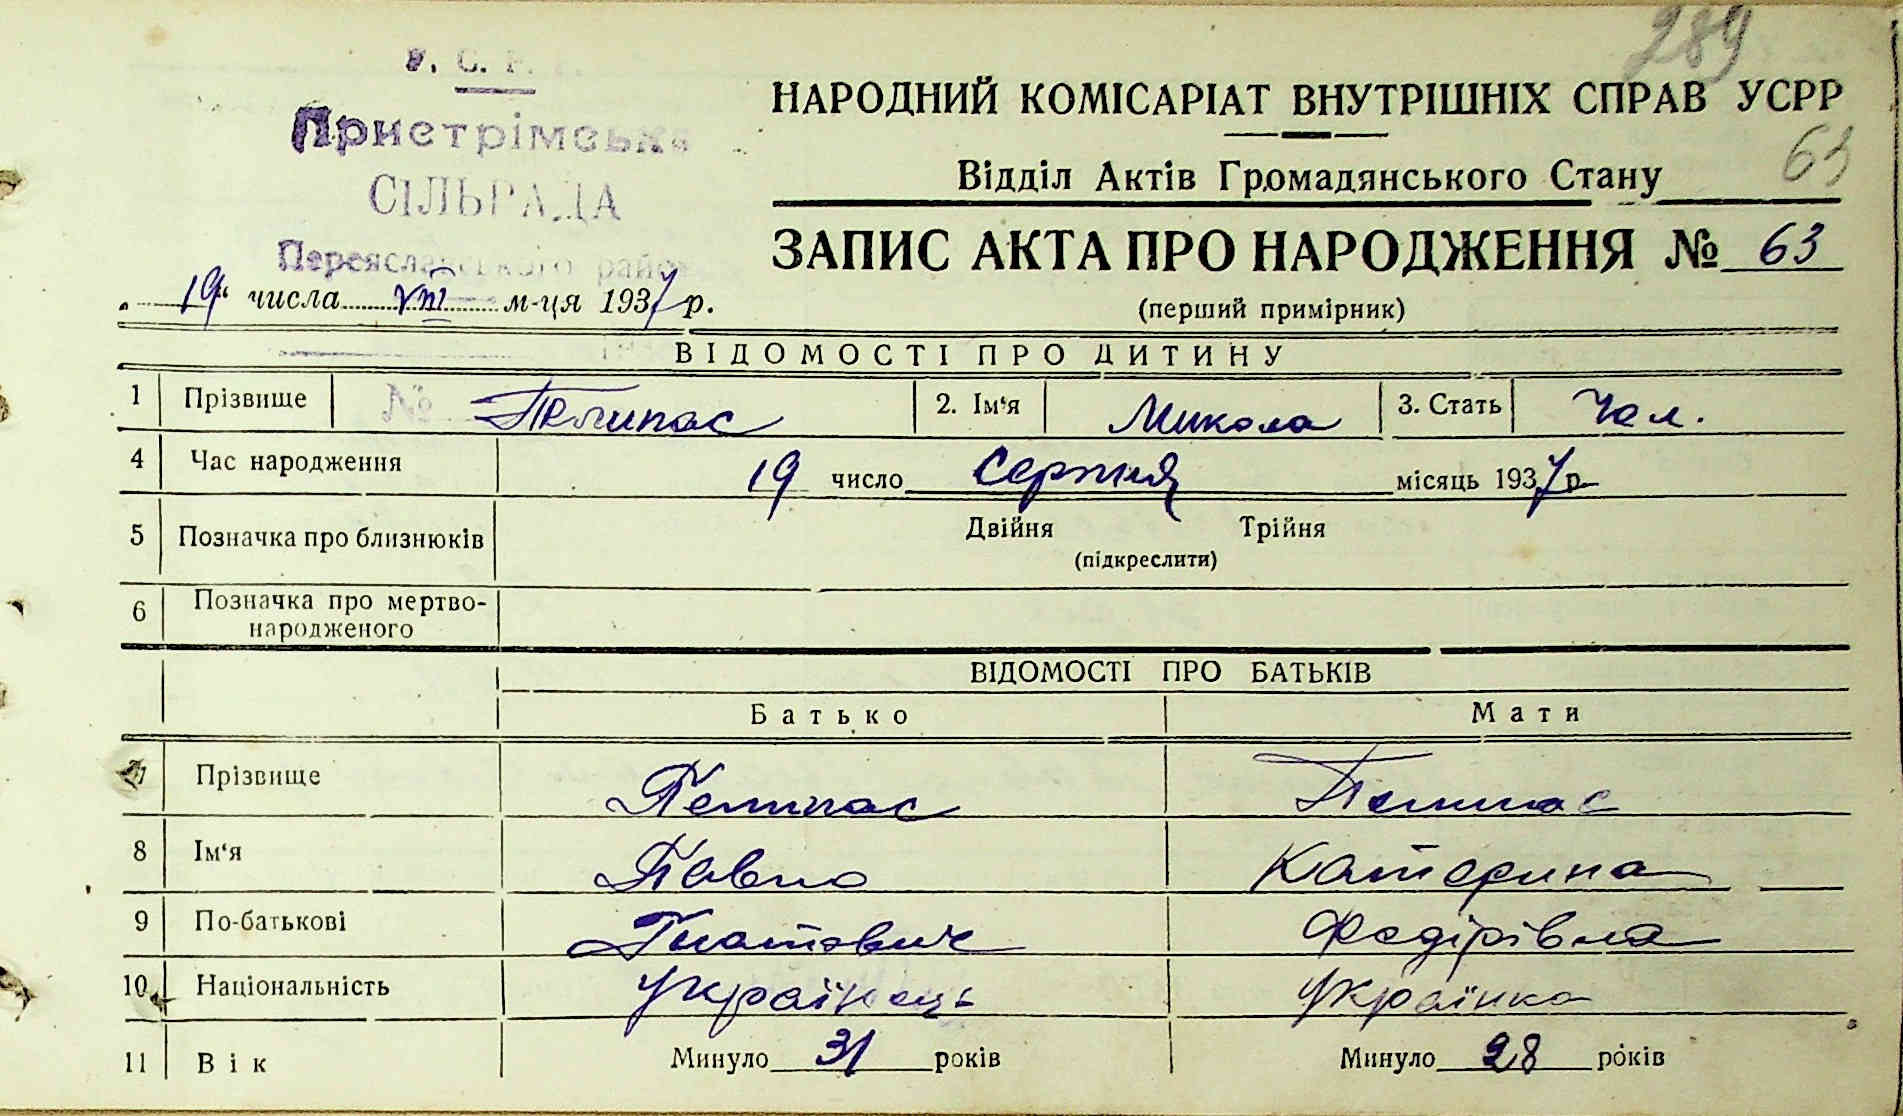 289
У. С. Р. Р.
Пристрімська
СІЛЬРАДА
Переяславського району
НАРОДНИЙ КОМІСАРІАТ ВНУТРІШНІХ СПРАВ УСРР
63
Відділ Актів Громадянського Стану
ЗАПИС АКТА ПРО НАРОДЖЕННЯ № 63
(перший примірник)
„19“ числа VIII м-ця 1937 р.
ВІДОМОСТІ ПРО ДИТИНУ
1 Прізвище № Пелипас 2. Ім‘я Микола 3. Стать Чол.
4 Час народження 19 число серпня місяць 1937 р.
5 Позначка про близнюків Двійня Трійня
(підкреслити)
6 Позначка про мертво-
народженого
ВІДОМОСТІ ПРО БАТЬКІВ
Батько Мати
7 Прізвище Пелипас Пелипас
8 Ім‘я Павло Катерина
9 По-батькові Гнатович Федірівна
10 Національність Українець Українка
11 Вік Минуло 31 років Минуло 28 років